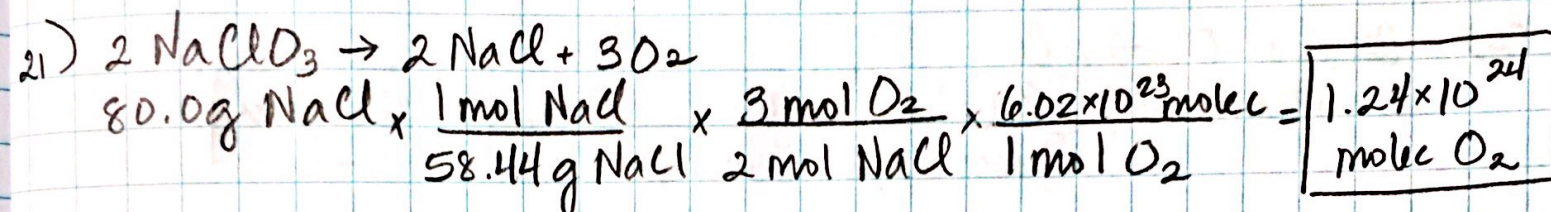 21) 2 NaClO₃ → 2 NaCl + 3O₂
80.0g NaCl x 1 mol NaCl / 58.44 g NaCl x 3 mol O₂ / 2 mol NaCl x 6.02x10²³ molec / 1 mol O₂ = 1.24x10²⁴ molec O₂